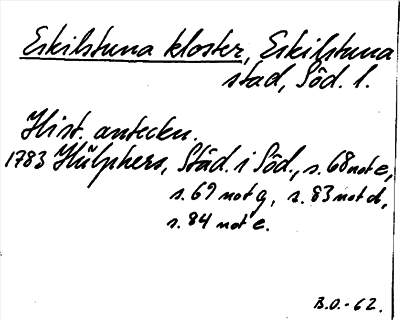 Eskilstuna kloster, Eskilstuna
stad, Söd. l.
Hist. anteckn.
1783 Hülphers, Städ. i Söd., s. 68 not e,
s. 69 not g, s. 83 not d,
s. 84 not e.
B.O.-62.